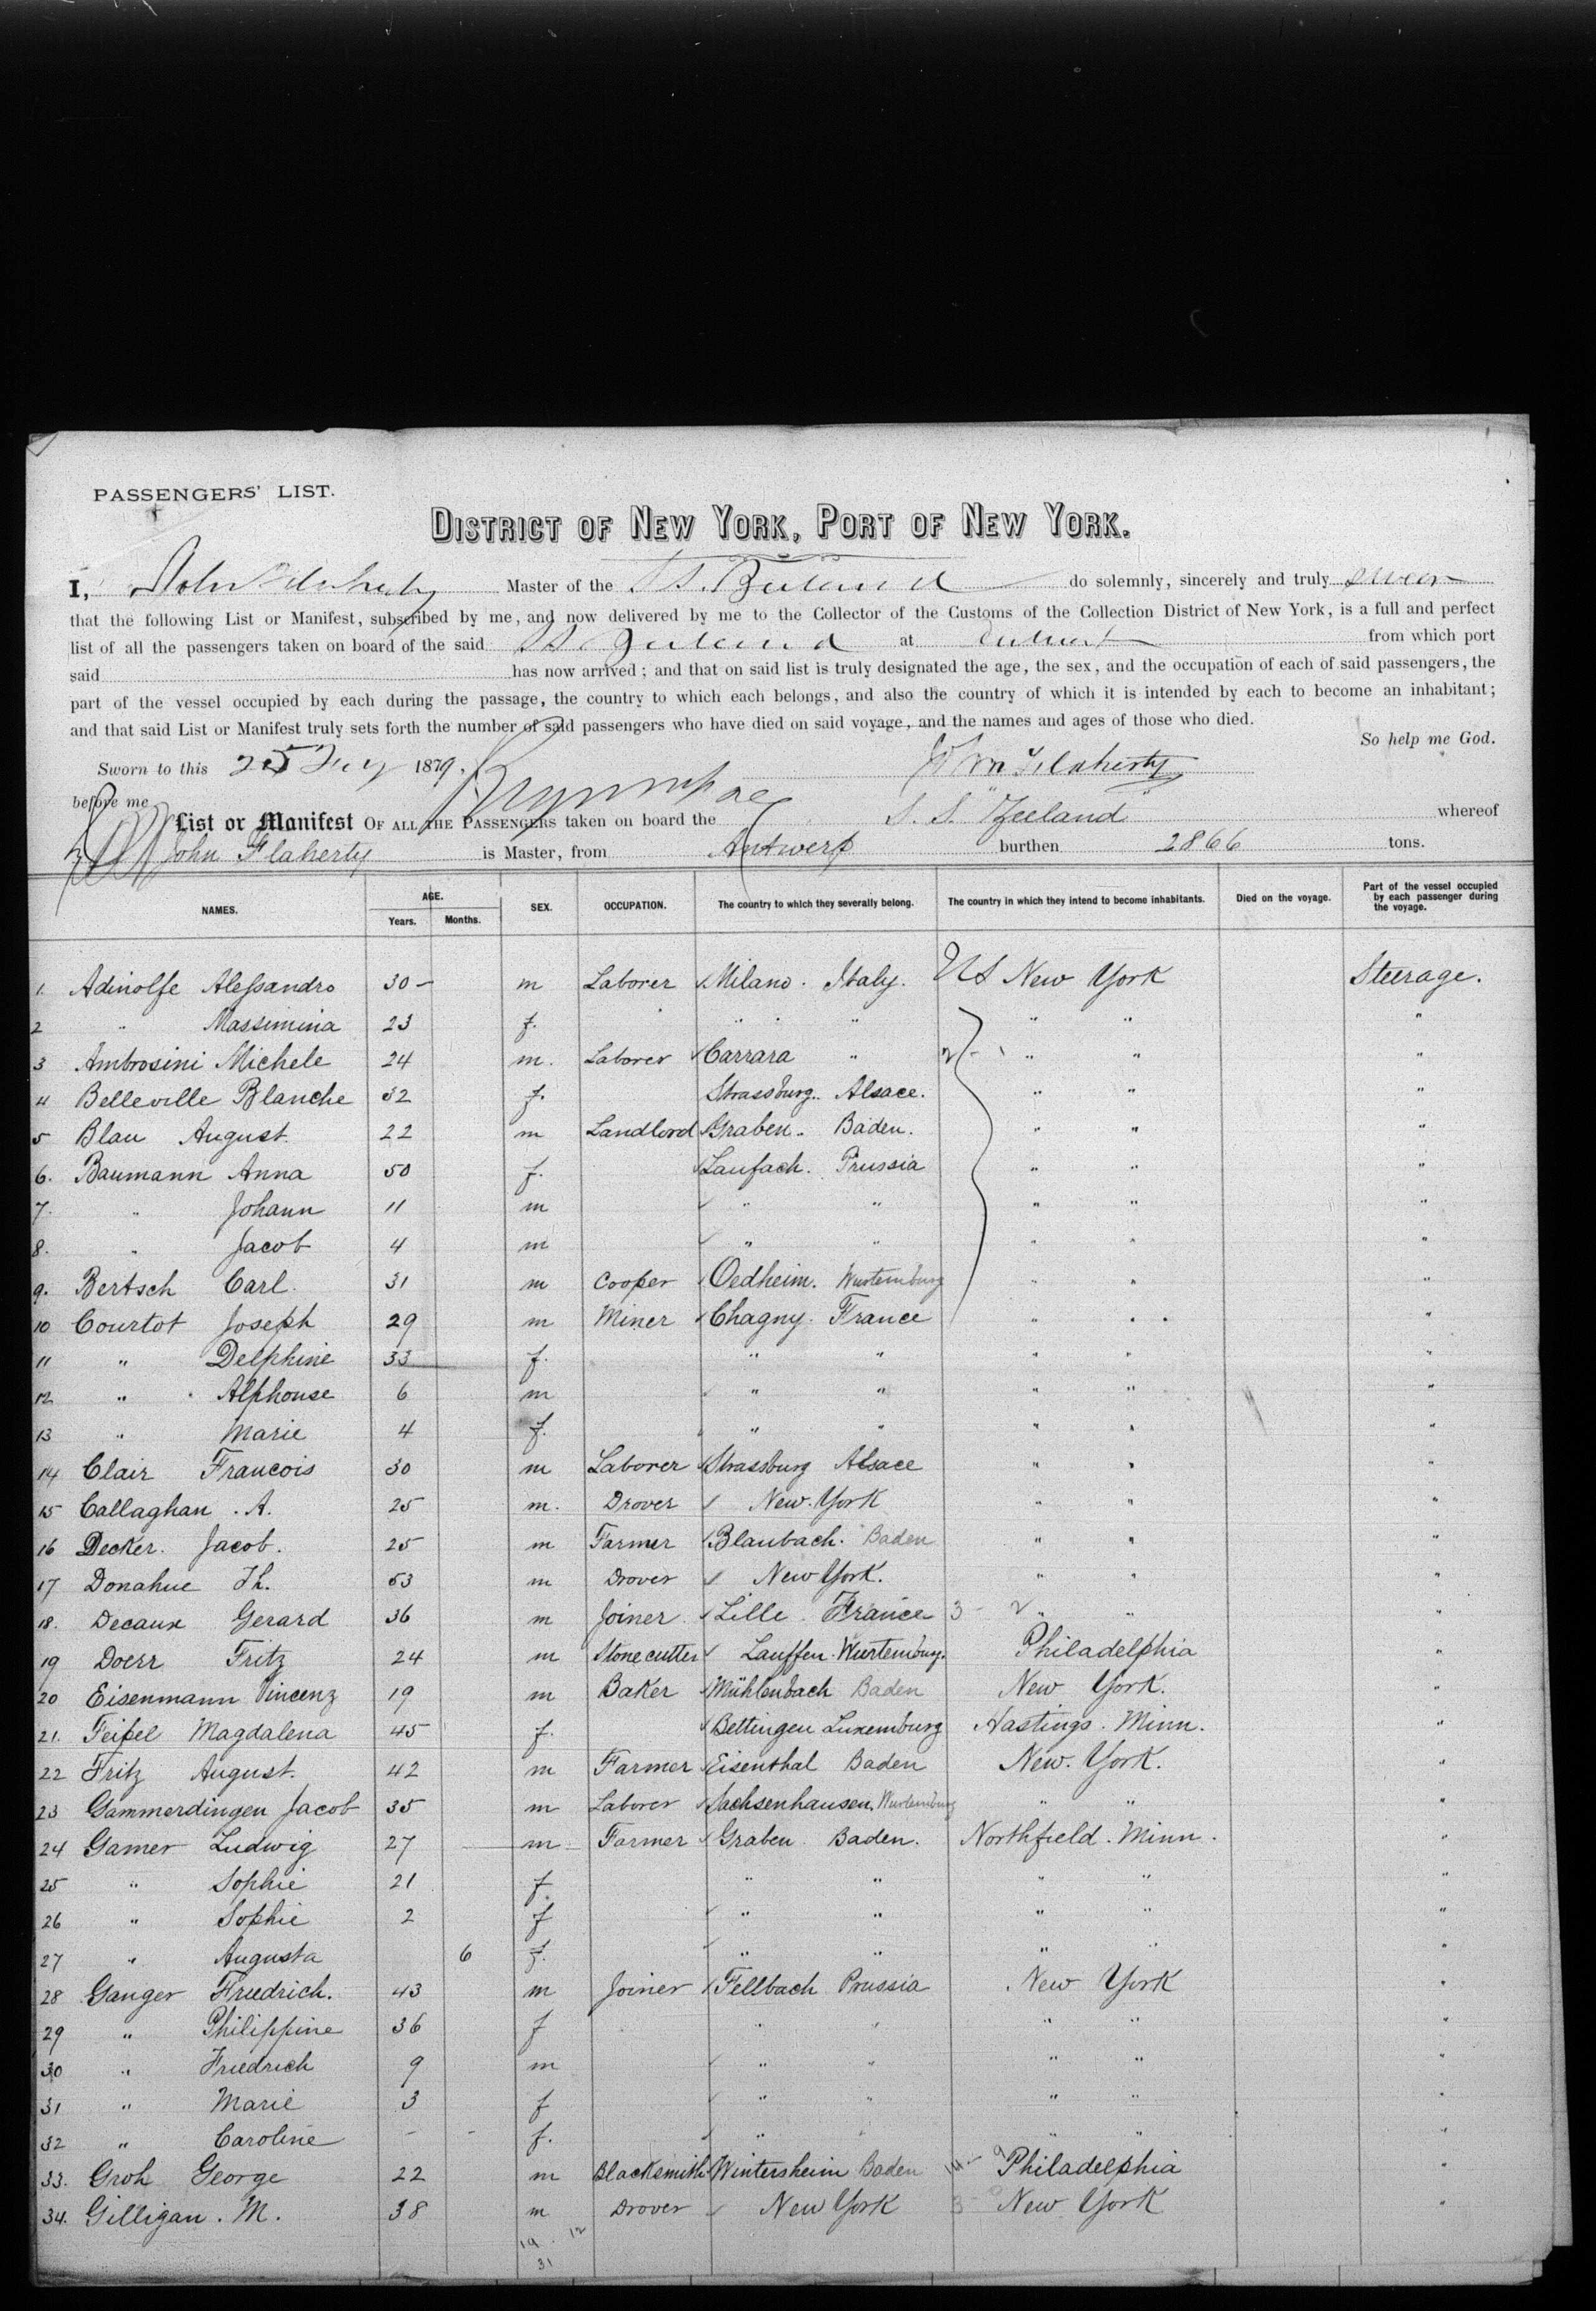 PASSENGERS' LIST.
DISTRICT OF NEW YORK, PORT OF NEW YORK.
I, John Flaherty Master of the SS. Zeeland do solemnly, sincerely and truly swear
that the following List or Manifest, subscribed by me, and now delivered by me to the Collector of the Customs of the Collection District of New York, is a full and perfect
list of all the passengers taken on board of the said SS. Zeeland at from which port
said has now arrived; and that on said list is truly designated the age, the sex, and the occupation of each of said passengers, the
part of the vessel occupied by each during the passage, the country to which each belongs, and also the country of which it is intended by each to become an inhabitant;
and that said List or Manifest truly sets forth the number of said passengers who have died on said voyage, and the names and ages of those who died.
So help me God.
Sworn to this 25 1879. Flaherty
before me
List or Manifest OF ALL THE PASSENGERS taken on board the S. S. "Zeeland" whereof
John Flaherty is Master, from Antwerp burthen 2866 tons.
NAMES. AGE. Years. Months. SEX. OCCUPATION. The country to which they severally belong. The country in which they intend to become inhabitants. Died on the voyage. Part of the vessel occupied by each passenger during the voyage.
1. Adinolfe Alessandro 30 m Laborer Milano. Italy. US New York Steerage.
2 " Massimina 23 f. " " " " "
3 Ambrosini Michele 24 m. Laborer Carrara " " " "
4 Belleville Blanche 32 f. Strassburg. Alsace. " " "
5 Blau August. 22 m Landlord Graben. Baden. " " "
6. Baumann Anna 50 f. Laufach. Prussia " " "
7. " Johann 11 m " " " " "
8. " Jacob 4 m " " " " "
9. Bertsch Carl. 31 m Cooper Oedheim. Wurtemburg " " "
10 Courtot Joseph 29 m Miner Chagny. France " " "
11 " Delphine 33 f. " " " " "
12 " Alphonse 6 m " " " " "
13 " Marie 4 f. " " " " "
14 Clair Francois 30 m Laborer Strassburg Alsace " " "
15 Callaghan. A. 25 m. Drover New York " " "
16 Decker. Jacob. 25 m Farmer Blaubach. Baden " " "
17 Donahue Th. 53 m Drover New York. " " "
18. Decaux Gerard 36 m Joiner Lille. France " " "
19 Doerr Fritz 24 m Stonecutter Lauffen. Wurtemburg. Philadelphia "
20 Eisenmann Vincenz 19 m Baker Mühlenbach Baden New York. "
21. Feipel Magdalena 45 f. Bettingen Luxemburg Hastings. Minn. "
22 Fritz August. 42 m Farmer Eisenthal Baden New. York. "
23 Gammerdingen Jacob 35 m Laborer Sachsenhausen, Wurtemburg " " "
24 Gamer Ludwig 27 m Farmer Graben Baden. Northfield. Minn. "
25 " Sophie 21 f. " " " " "
26 " Sophie 2 f " " " " "
27 " Augusta 6 f. " " " " "
28 Ganger Friedrich. 43 m Joiner Fellbach Prussia New York "
29 " Philippine 36 f " " " " "
30 " Friedrich 9 m " " " " "
31 " Marie 3 f " " " " "
32 " Caroline - - f. " " " " "
33. Groh George 22 m Blacksmith Wintersheim Baden Philadelphia "
34. Gilligan. M. 38 m Drover New York New York "
19 12
31